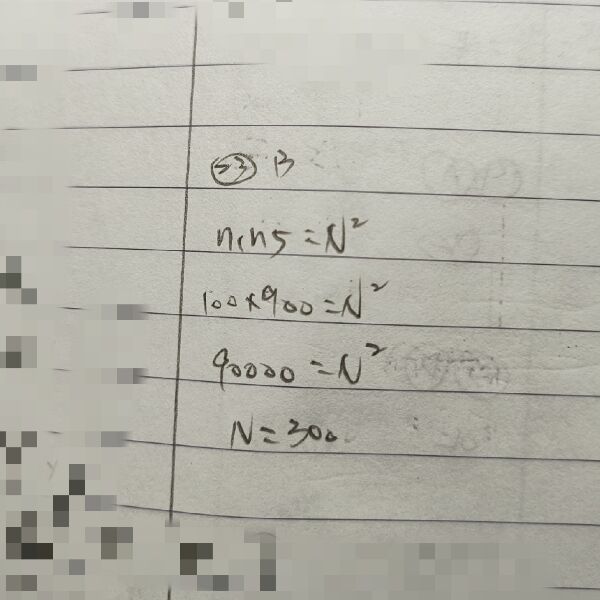 53 B
n1n5 = N²
100 × 900 = N²
90000 = N²
N = 300